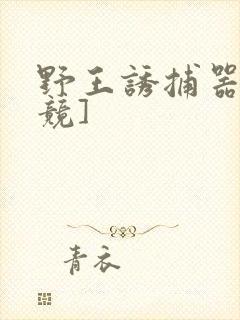 野王誘捕器
競]
青衣